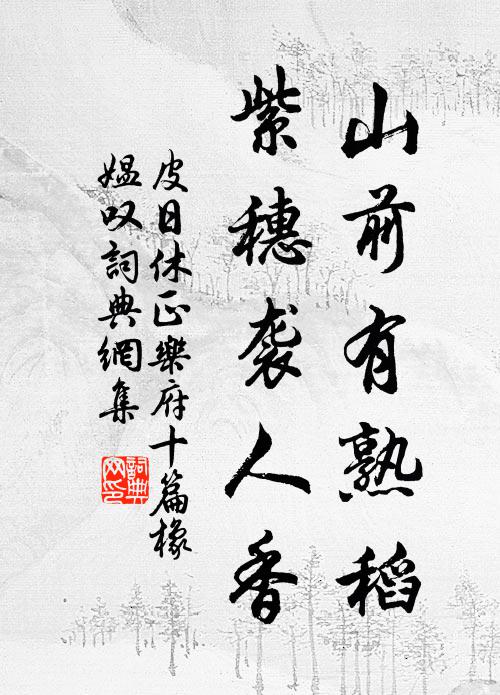 山前有熟稻
紫穗袭人香
皮日休正樂府十篇橡
媪叹詞典網集
詞典网印